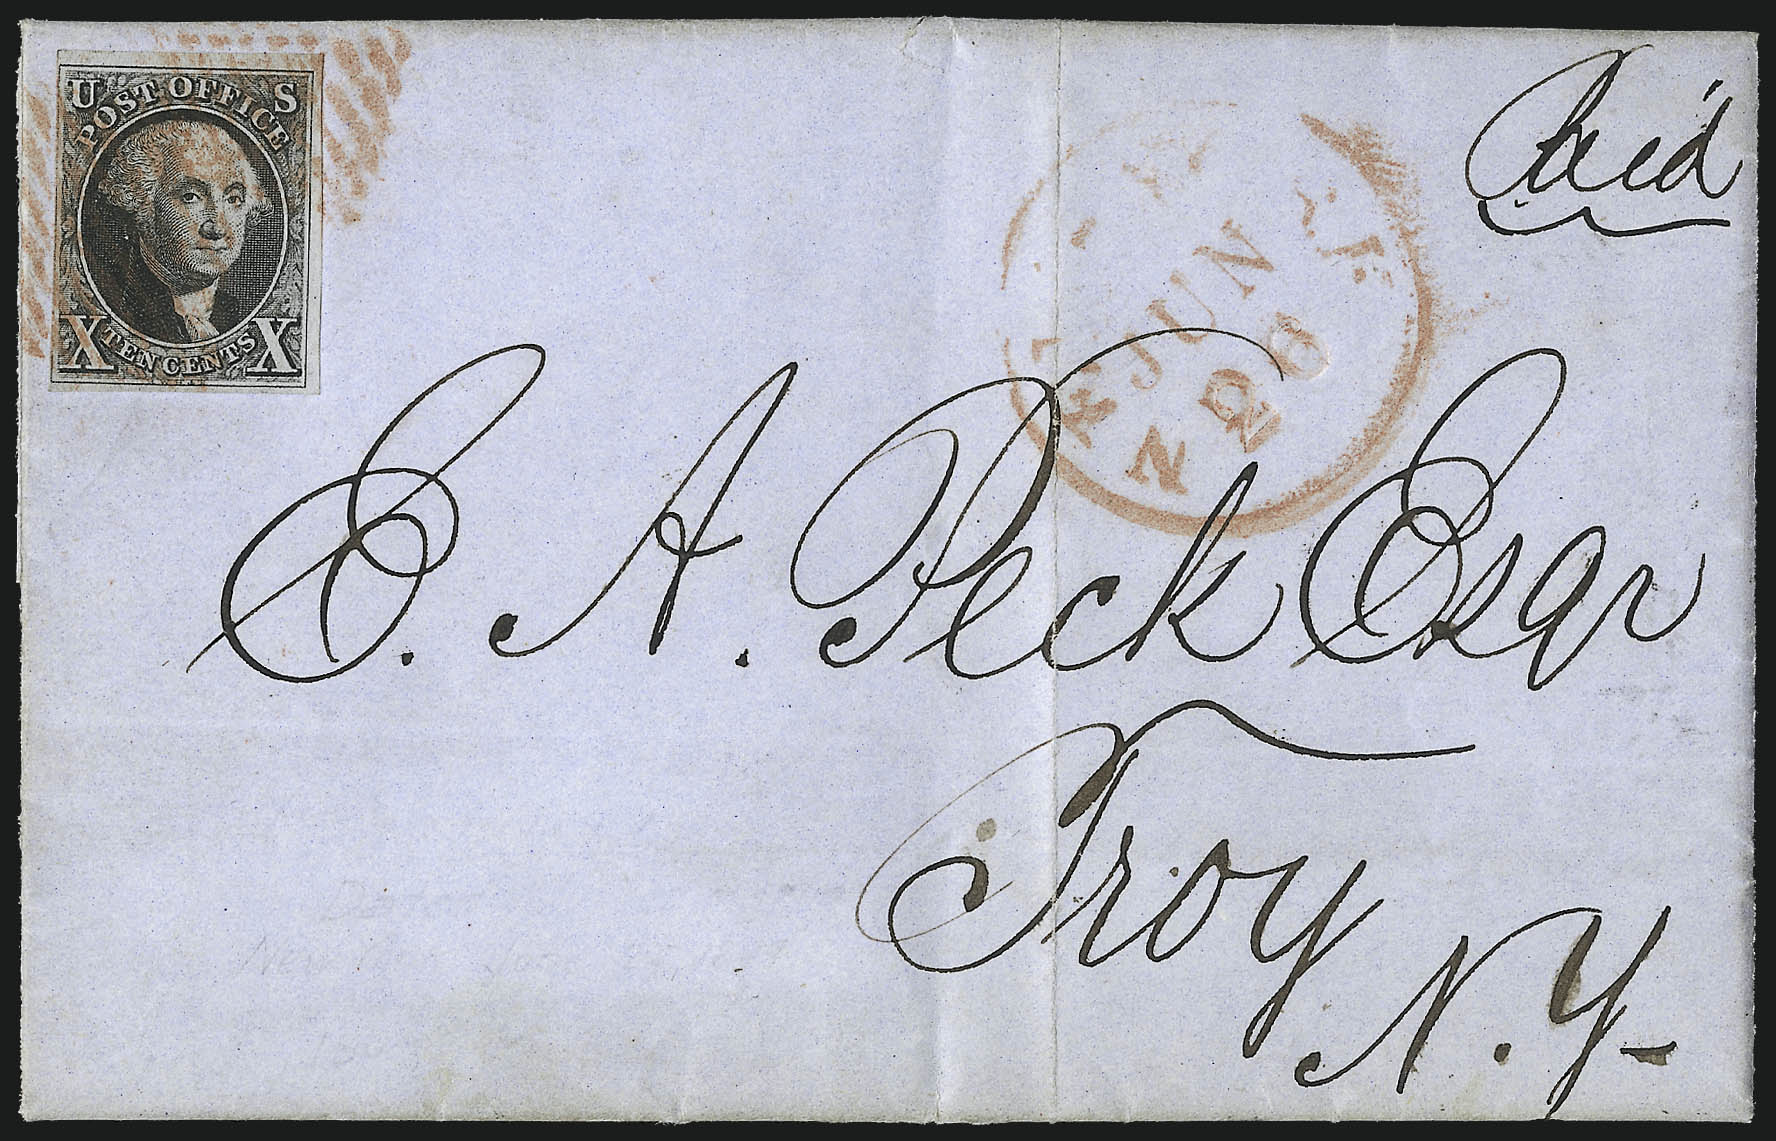 U S
POST OFFICE
X TEN CENTS X
Paid
JUN
26
E. A. Peck Esqr
Troy
N. Y-